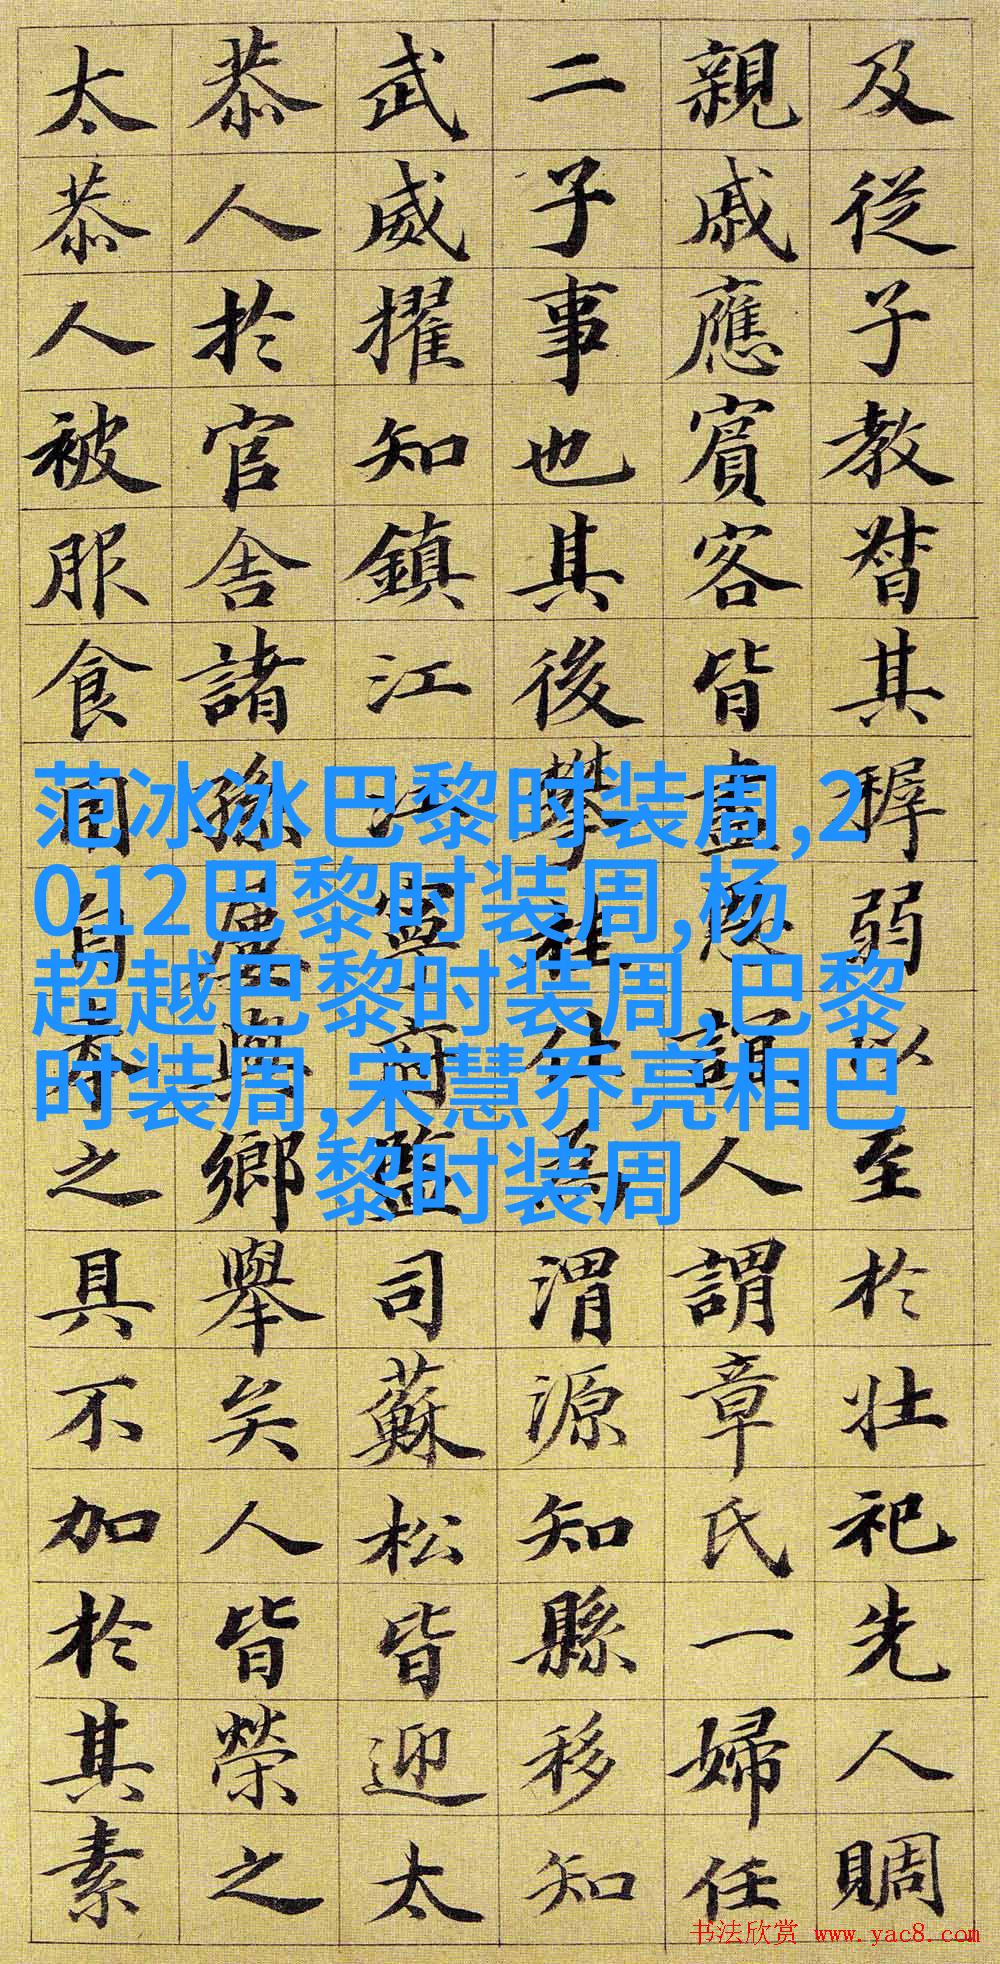 及從子教督其穉弱以至於壯祀先人賙
親戚應賓客皆盡誼人謂章氏一婦任
二子事也其後攀桂仕為渭源知縣移知
武威擢知鎮江江寧府監司蘇松皆迎太
恭人於官舍諸孫屢與鄉舉矣人皆榮之
太恭人被服食用自奉之具不加於其素
范冰冰巴黎时装周,2
012巴黎时装周,杨
超越巴黎时装周,巴黎
时装周,宋慧乔亮相巴
黎时装周
书法欣赏 www.yac8.com